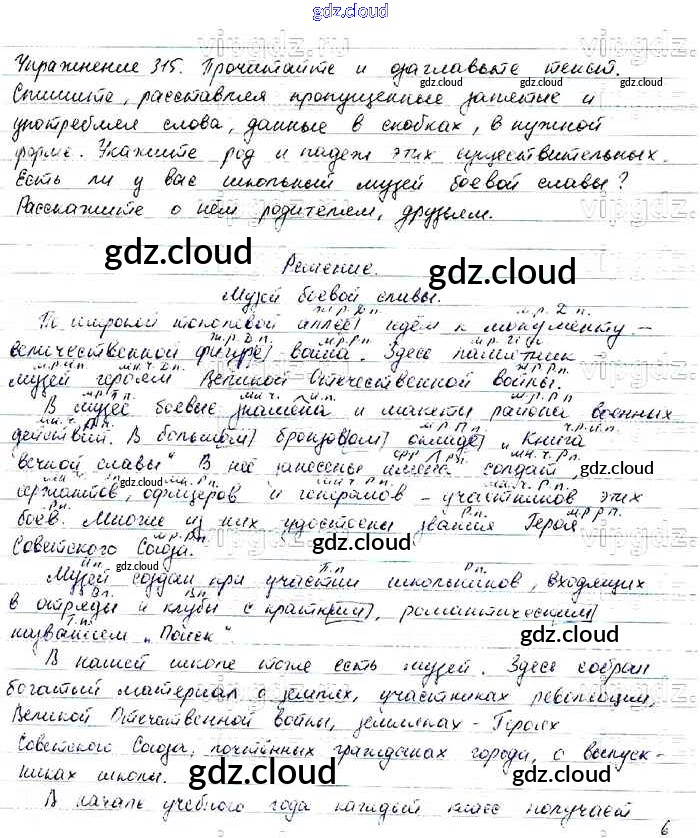 gdz.cloud
Упражнение 315. Прочитайте и озаглавьте текст.
Спишите, расставляя пропущенные запятые и
употребляя слова, данные в скобках, в нужной
форме. Укажите род и падеж этих существительных.
Есть ли у вас школьный музей боевой славы?
Расскажите о нём родителям, друзьям.
gdz.cloud
Решение.
gdz.cloud
Музей боевой славы.
По широкой тополовой аллее идём к монументу –
величественной фигуре воина. Здесь памятник –
музей героям Великой Отечественной войны.
В музее боевые знамёна и макеты района военных
действий. В большом бронзовом окладе „Книга
вечной славы“ В неё занесены имена солдат,
gdz.cloud
сержантов, офицеров и генералов – участников этих
боёв. Многие из них удостоены звания Героя
Советского Союза.
gdz.cloud
Музей создан при участии школьников, входящих
в отряды и клубы с кратким, романтическим
названием „Поиск“
gdz.cloud
В нашей школе тоже есть музей. Здесь собран
богатый материал о земляках, участниках революции,
Великой Отечественной войны, земляках – Героях
Советского Союза, почётных гражданах города, о выпуск-
никах школы.
gdz.cloud
gdz.cloud
В начале учебного года каждый класс получает
6